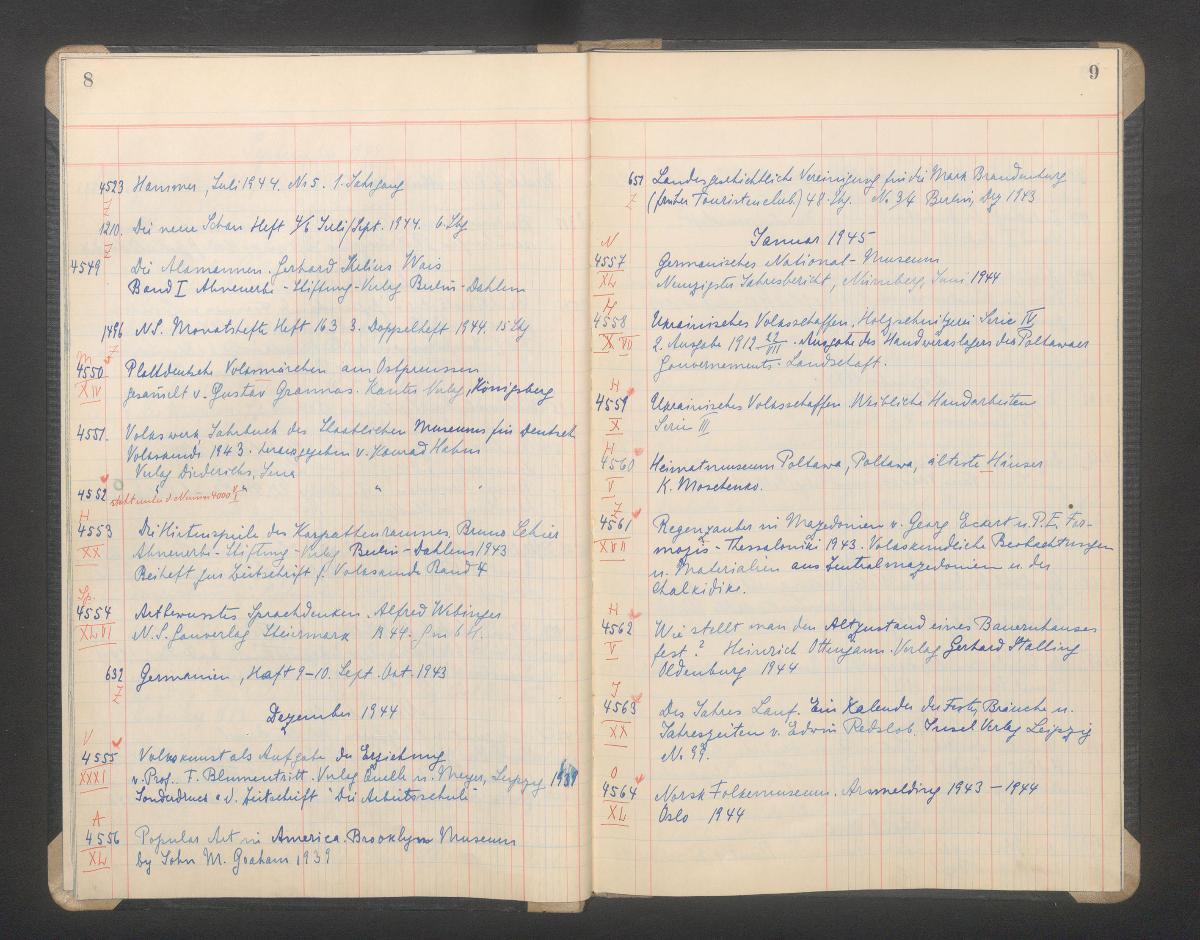 8
4523 Hannover, Juli 1944. No 5. 1. Jahrgang
Z
1210. Die neue Schau Heft 4/6 Juli/Sept. 1944. 6. Jhg
Z
4549 Die Alamannen. Gerhard Julius Wais
Band I Ahnenerbe-Stiftung-Verlag Berlin-Dahlem
1496 N.S. Monatshefte Heft 163 3. Doppelheft 1944. 15 Jhg
Z
M
4550 Plattdeutsche Volksmärchen aus Ostpreussen
XIV gesammelt v. Gustav Grannas. Kanter Verlag, Königsberg
4551. Volkswerk, Jahrbuch des Staatlichen Museums für Deutsche
Volkskunde 1943. herausgegeben v. Konrad Hahm
Verlag Diederichs, Jena
4552 steht unter d. Nummer 4000 V/I " "
H
4553 Die Hirtenspiele des Karpathenraumes, Bruno
XX Ahnenerbe-Stiftung-Verlag Berlin-Dahlem 1943
Beiheft zur Zeitschrift f. Volkskunde Band 4
Sp.
4554 Artbewusstes Sprachdenken. Alfred Webinger
XLVI N.S. Gauverlag Steiermark 1944. GmbH.
632 Germanien, Heft 9-10. Sept. Okt. 1943
Z
Dezember 1944
V
4555 Volkskunst als Aufgabe der Erziehung
XXXI v. Prof. F. Blumentritt. Verlag Quelle u. Meyer, Leipzig 1939
Sonderdruck a. d. Zeitschrift "Die Arbeitsschule"
A
4556 Popular Art in America. Brooklyn Museum
XL by John M. Graham 1939
9
657 Landesgeschichtliche Vereinigung für die Mark Brandenburg
Z (früher Touristenclub) 48. Jhg. No 3/4 Berlin, Dez 1943
Januar 1945
N
4557 Germanisches National-Museum
XL Neunzigster Jahresbericht, Nürnberg, Juni 1944
H
4558 Ukrainisches Volksschaffen. Holzschnitzerei Serie IV
X VII 2. Ausgabe 1912 22/VII. Ausgabe des Handwerkslagers des Poltawaer
Gouvernements-Landschaft.
H
4559 Ukrainisches Volksschaffen. Weibliche Handarbeiten
X Serie II
H
4560 Heimatmuseum Poltawa, Poltawa, älteste Häuser
V K. Moschenko.
Z
4561 Regenzauber in Mazedonien v. Georg Eckert u. P.E. For-
XVII mozis - Thessaloniki 1943. Volkskundliche Beobachtungen
u. Materialien aus Zentralmazedonien u. der
Chalkidike.
H
4562 Wie stellt man den Altzustand eines Bauernhauses
V fest? Heinrich Ottenjann. Verlag Gerhard Stalling
Oldenburg 1944
J
4563 Des Jahres Lauf. Ein Kalender der Feste, Bräuche u.
XX Jahreszeiten v. Edwin Redslob. Insel Verlag Leipzig
No 99.
O
4564 Norsk Folkemuseum. Arsmelding 1943-1944
XL Oslo 1944